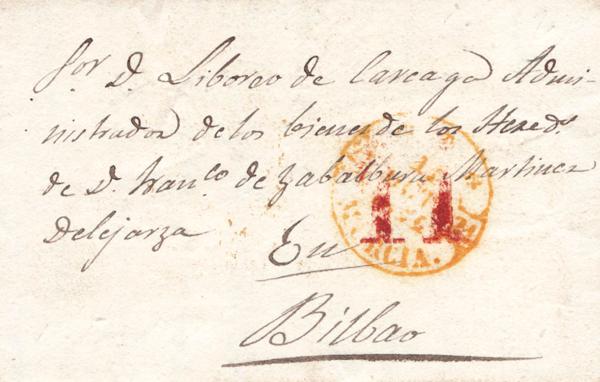 Sor. D. Liboreo de Careaga Admi-
nistrador de los bienes de los Hered.s
de D. Fran.co de Zabalburu Martinez
Delejarza
En
Bilbao
11
MURCIA.